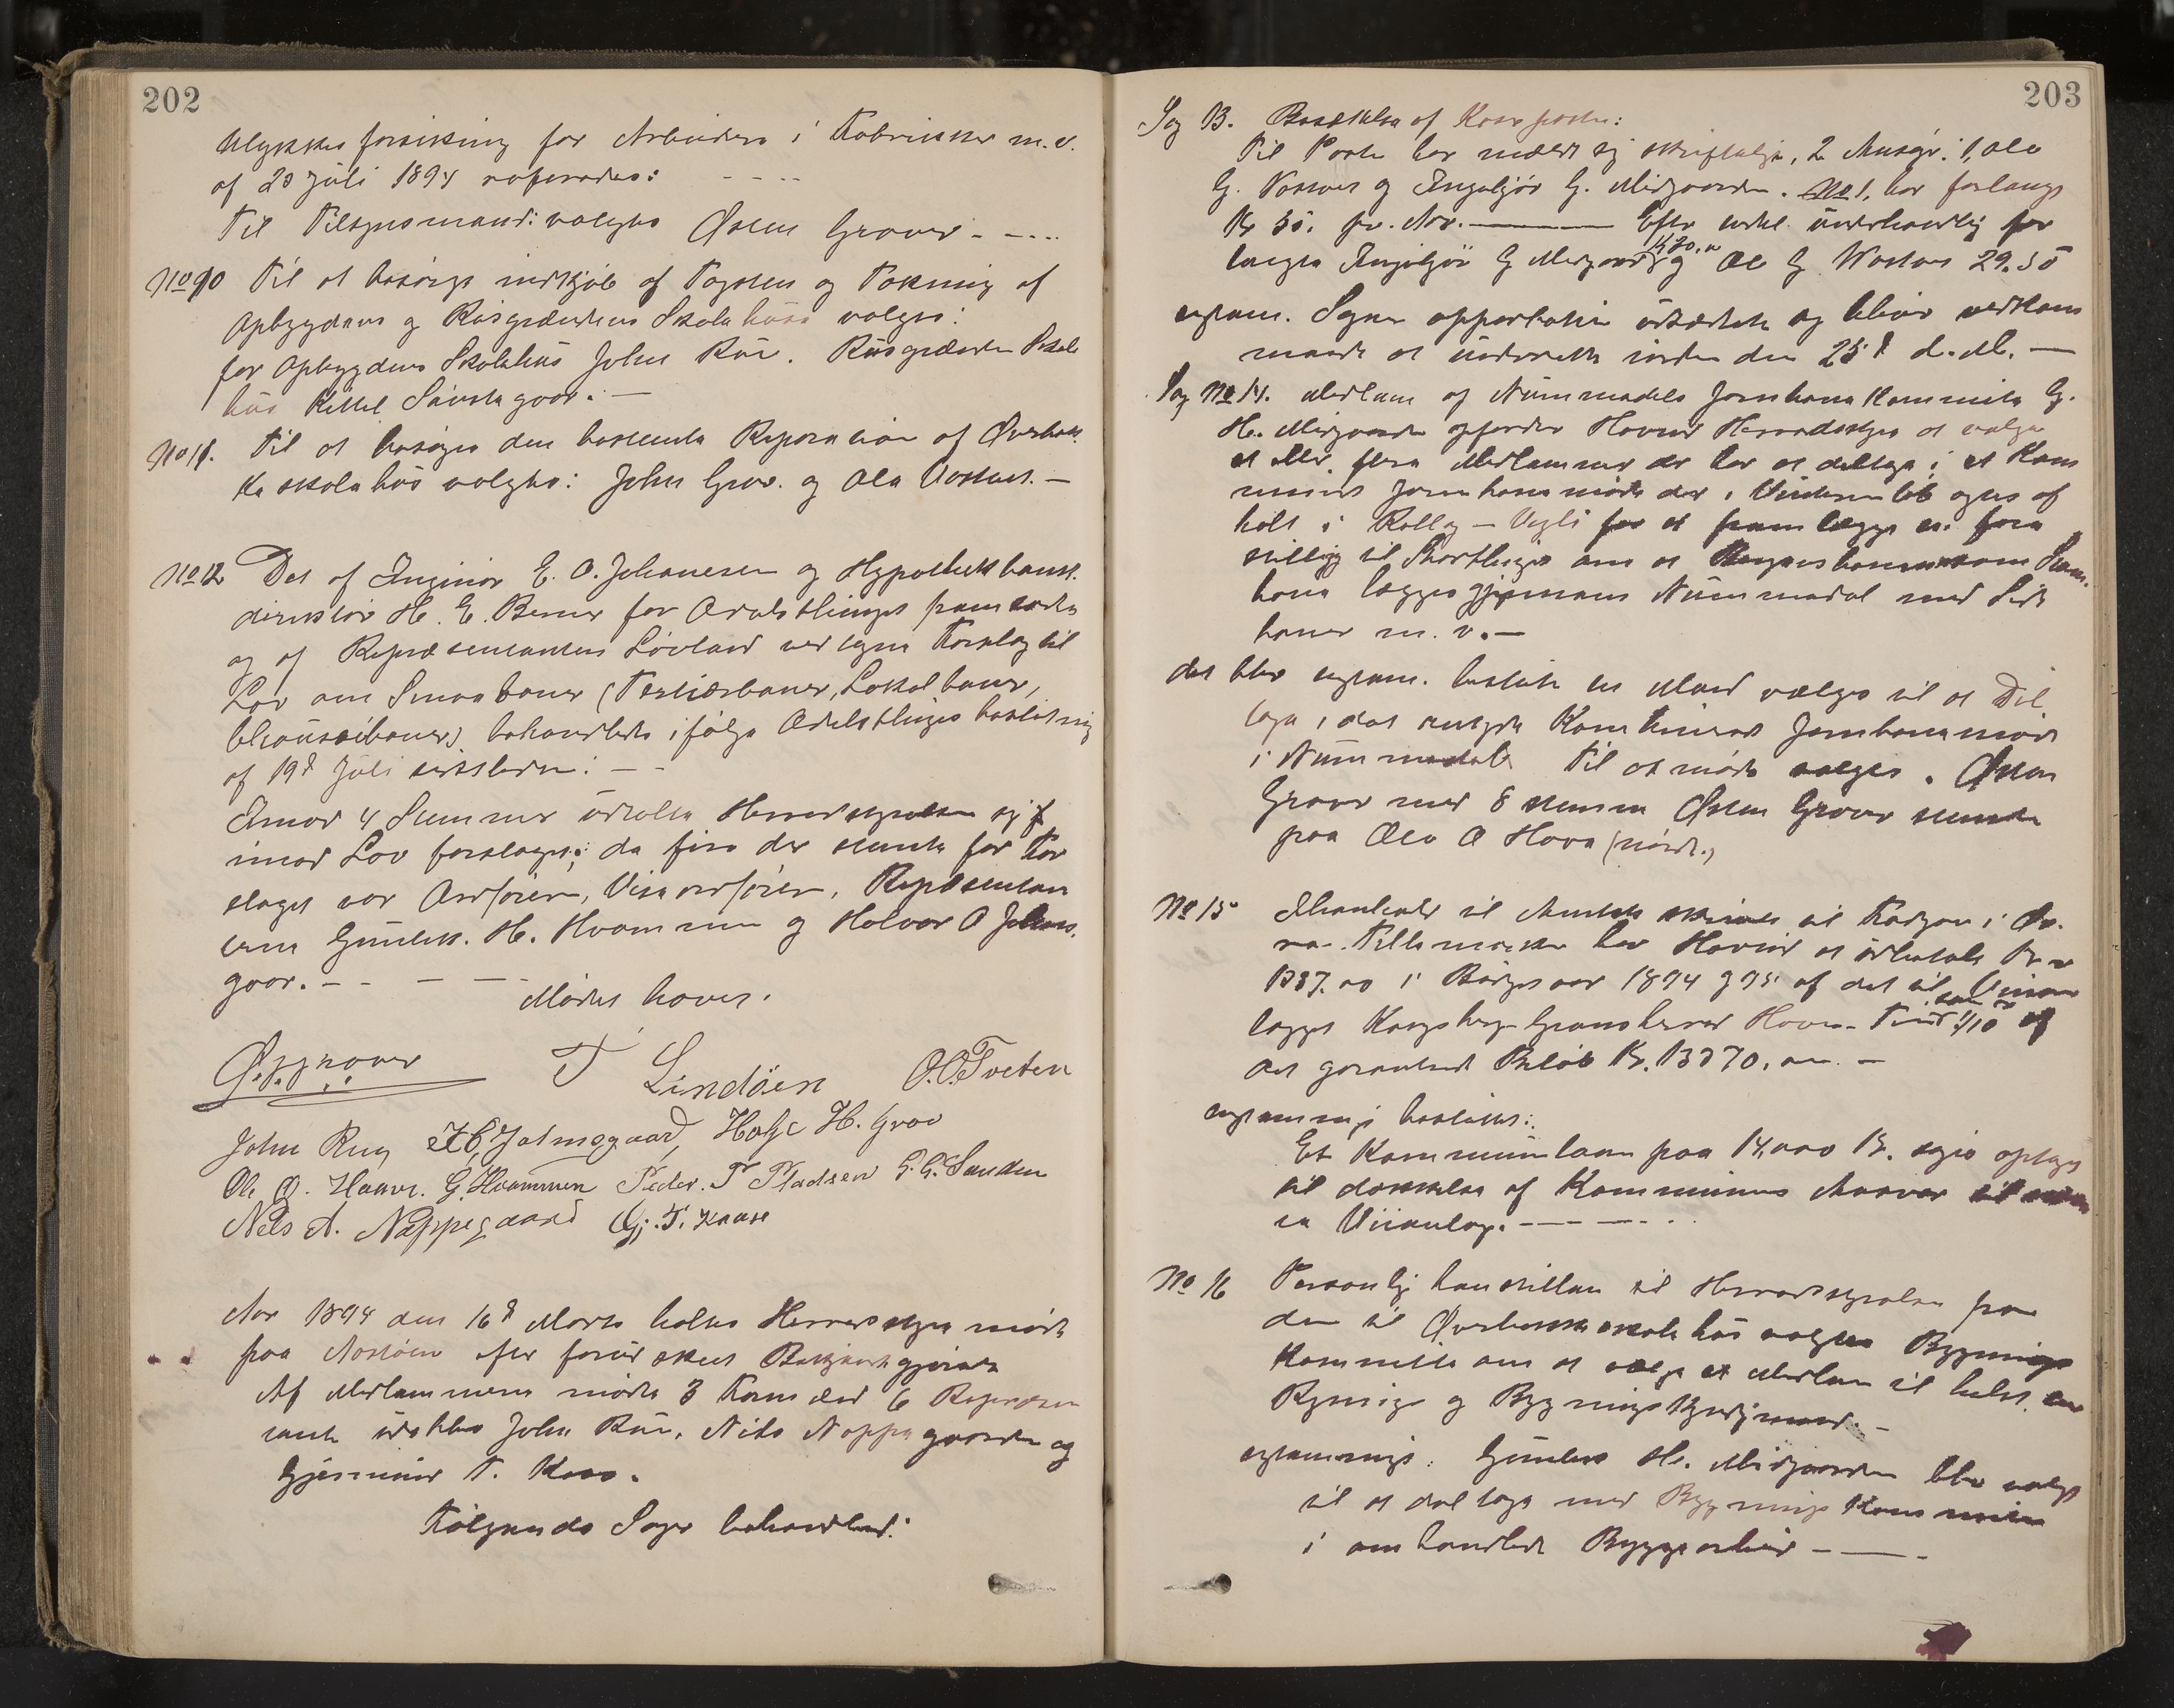 202
Ulykkesforsikring for Arbeidere i Fabrikker m.v.
af 23 Juli 1894 refereredes:
Til Tilsynsmand: valgtes Østen Grover
No 10 Til at besørge indkjøb af Tagsten og Tækning af
Opbygdens og Rusgrændens Skolehuse valgtes:
for Opbygdens Skolehus John Rue. Rusgrænden Skole
hus Kittel Sønstegaar.
No 11. Til at besørge den bestemte Reparasion af Øverbøk
ke skolehus valgtes: John Grov. og Ole Vostveit.
No 12 Det af Ingeniør E. O. Johanesen og Hypothekbank.
direktør H. E. Berner for Odelsthinget fremsadte
og af Repræsentanten Løvland vedtagne Forslag til
Lov om Smaabaner (Tertiærbaner, Lokalbaner,
Chausseibaner) behandledes ifølge Odelsthingets beslutning
af 19d Juli sidstleden:
Imod 4 Stemmer udtalte Herredsstyrelsen sig
imod Lov forslaget; de fire der stemte for For
slaget var Ordføreren, Viseordføren, Repræsentan
terne Gunleik. H. Hvammen og Halvor O Jelms
gaar.
Mødet hævet.
Ø. G. Grover T Lindöen O.O. Tveten
John Rue H O Jalmsgaard, Helge H. Grov
Ole O. Haave. G. Hvammen Peder. T Pladsen G. G. Sanden
Nels A. Nappegaard Gj. T. Kaase
Aar 1894 den 16d Marts holtes Herredsstyre møde
paa Nostöen efter forud skeet Bekjendtgjørelse
Af Medlemmerne mødte 3 Formænd 6 Repræsen
tanter udeblev John Rue, Nils Nappegaarden og
Gjermund T. Kaas.
Følgende Sager behandled:
203
Sag 13. Besættelse af Kasserposten:
Til Posten har meldt sig skriftelige, 2 Ansøgr. 1, Ole
G. Vostveit og Ingebjør G. Midgaarden. No 1, har forlangt
Kr 35. pr. Aar. Efter endel underhandling for
langte Ingebjør G Midgaard Kr 30, og Ole G Vostveit 29.50
enstem. Sagen opportunin udsættes og bliver vedkom
mende at underrette inden den 25d d. M.
Sag No 14. Medlem af Nummedals Jernbane Kommite G.
H. Midgaarden opfordrer Hovind Herredsstyre at vælge
et eller flere Medlemmer der har at deltage i et Kom
mineret Jernbanemøde der i Vinterens løb agtes af
holt i Rollag – Vegli for at fremlægge en fore
stilling til Storthinget om at Bergensbanen som Stam
bane lægges gjennem Nummedal med Side
baner m. v.
det blev enstem. besluttet en Mand vælges til at Del
tage i det nævnte Kombineret Jernbanemøde
i Nummedalen Til at møde vælges. Østen
Grover med 8 stemmer Østen Grover stemte
paa Ole O Hova (nørdr.)
No 15 Ihenhold til Amtets skrivelse til Fogden i Øv.
re Tellemarken har Hovind at udbetale Kr
1337.00 i Budgetaar 1894 & 95 af det til Veian
lægget Kongsberg Gransherred Hovin Tind som er 1/10 af
det garanterede Beløb Kr. 13370.00.
enstemmig besluttes:
Et Kommunelaan paa 14,000 Kr. agtes optaget
til dækkelse af Kommunens Ansvar
te Veianlæg.
No 16 Personlig henstillen til Herredsstyrelsen fra
den til Øverbøkke skolehus valgtes Bygnings
Kommitte om at vælge et Medlem til helst en
Bygnings og Bygningskyndig mand.
enstemmigt. Gunleik H. Midgaarden blev valgt
til at deltage med Bygnings Kommiteen
i omhandlede Byggearbeid